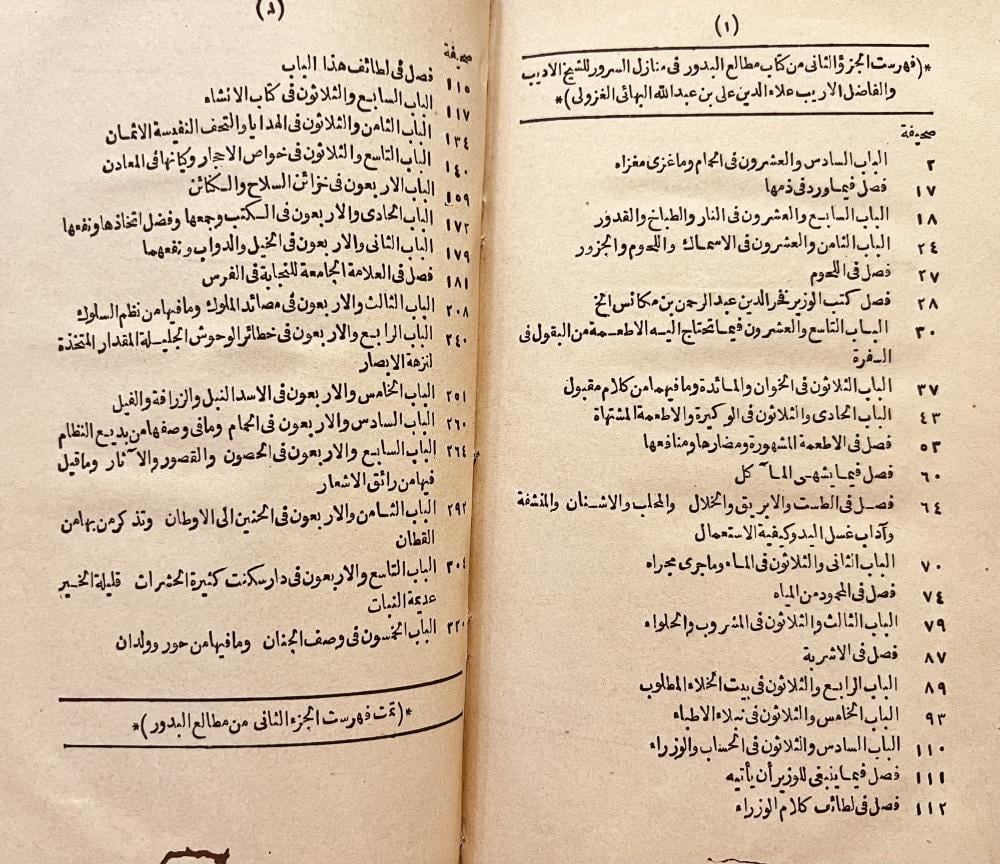 (١)
*(فهرست الجزؤ الثانى من كتاب مطالع البدور فى منازل السرور للشيخ الاديب
والفاضل الاريب علاء الدين على بن عبد الله البهائى الغزولى)*
صحيفة
٢ الباب السادس والعشرون فى الحمام وماغزى مغزاه
١٧ فصل فيما ورد فى ذمها
١٨ الباب السابع والعشرون فى النار والطباخ والقدور
٢٤ الباب الثامن والعشرون فى الاسماك واللحوم والجزور
٢٧ فصل فى اللحوم
٢٨ فصل كتب الوزير فخر الدين عبد الرحمن بن مكانس الخ
٣٠ الباب التاسع والعشرون فيما تحتاج اليه الاطعمة من البقول فى
السفرة
٣٧ الباب الثلاثون فى الخوان والمائدة ومافيهما من كلام مقبول
٤٣ الباب الحادى والثلاثون فى الوكيرة والاطعمة المشتهاة
٥٣ فصل فى الاطعمة المشهورة ومضارها ومنافعها
٦٠ فصل فيما يشهى المآكل
٦٤ فصل فى الطست والابريق والخلال والمحلب والاشنان والمنشفة
وآداب غسل اليد وكيفية الاستعمال
٧٠ الباب الثانى والثلاثون فى الماء وماجرى مجراه
٧٤ فصل فى المحمود من المياه
٧٩ الباب الثالث والثلاثون فى المشروب والحلواء
٨٧ فصل فى الاشربة
٨٩ الباب الرابع والثلاثون فى بيت الخلاء المطلوب
٩٣ الباب الخامس والثلاثون فى نبلاء الاطباء
١١٠ الباب السادس والثلاثون فى الحساب والوزراء
١١١ فصل فيما ينبغى للوزير أن يأتيه
١١٢ فصل فى لطائف كلام الوزراء
صحيفة
١١٥ فصل فى لطائف هذا الباب
١١٧ الباب السابع والثلاثون فى كتاب الانشاء
١٣٤ الباب الثامن والثلاثون فى الهدايا والتحف النفيسة الاثمان
١٤٠ الباب التاسع والثلاثون فى خواص الاحجار وكيانها فى المعادن
١٥٩ الباب الاربعون فى خزائن السلاح والكنائن
١٧٢ الباب الحادى والاربعون فى الكتب وجمعها وفضل اتخاذها ونفعها
١٧٩ الباب الثانى والاربعون فى الخيل والدواب ونفعهما
١٨١ فصل فى العلامة الجامعة للنجابة فى الفرس
٢٠٨ الباب الثالث والاربعون فى مصائد الملوك ومافيها من نظم السلوك
٢٤٠ الباب الرابع والاربعون فى خطائر الوحوش الجليلة المقدار المتخذة
لنزهة الابصار
٢٥١ الباب الخامس والاربعون فى الاسد النبل والزرافة والفيل
٢٦٠ الباب السادس والاربعون فى الحمام ومافى وصفها من بديع النظام
٢٦٤ الباب السابع والاربعون فى الحصون والقصور والآثار وماقيل
فيها من رائق الاشعار
٢٩٢ الباب الثامن والاربعون فى الحنين الى الاوطان وتذكر من بها من
القطان
٣٠٤ الباب التاسع والاربعون فى دار سكنت كثيرة الحشرات قليلة الخير
عديمة النبات
٣٢٠ الباب الخمسون فى وصف الجنان ومافيها من حور وولدان
*(تمت فهرست الجزء الثانى من مطالع البدور)*